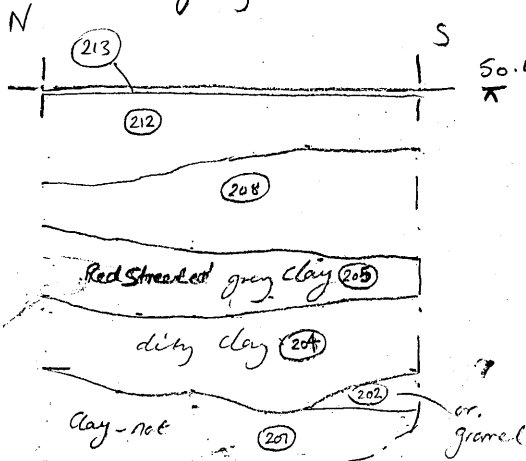 N
S
213
50.
212
208
Red Streaked grey clay 205
dirty clay 204
202
or.
gravel
Clay - nat
201